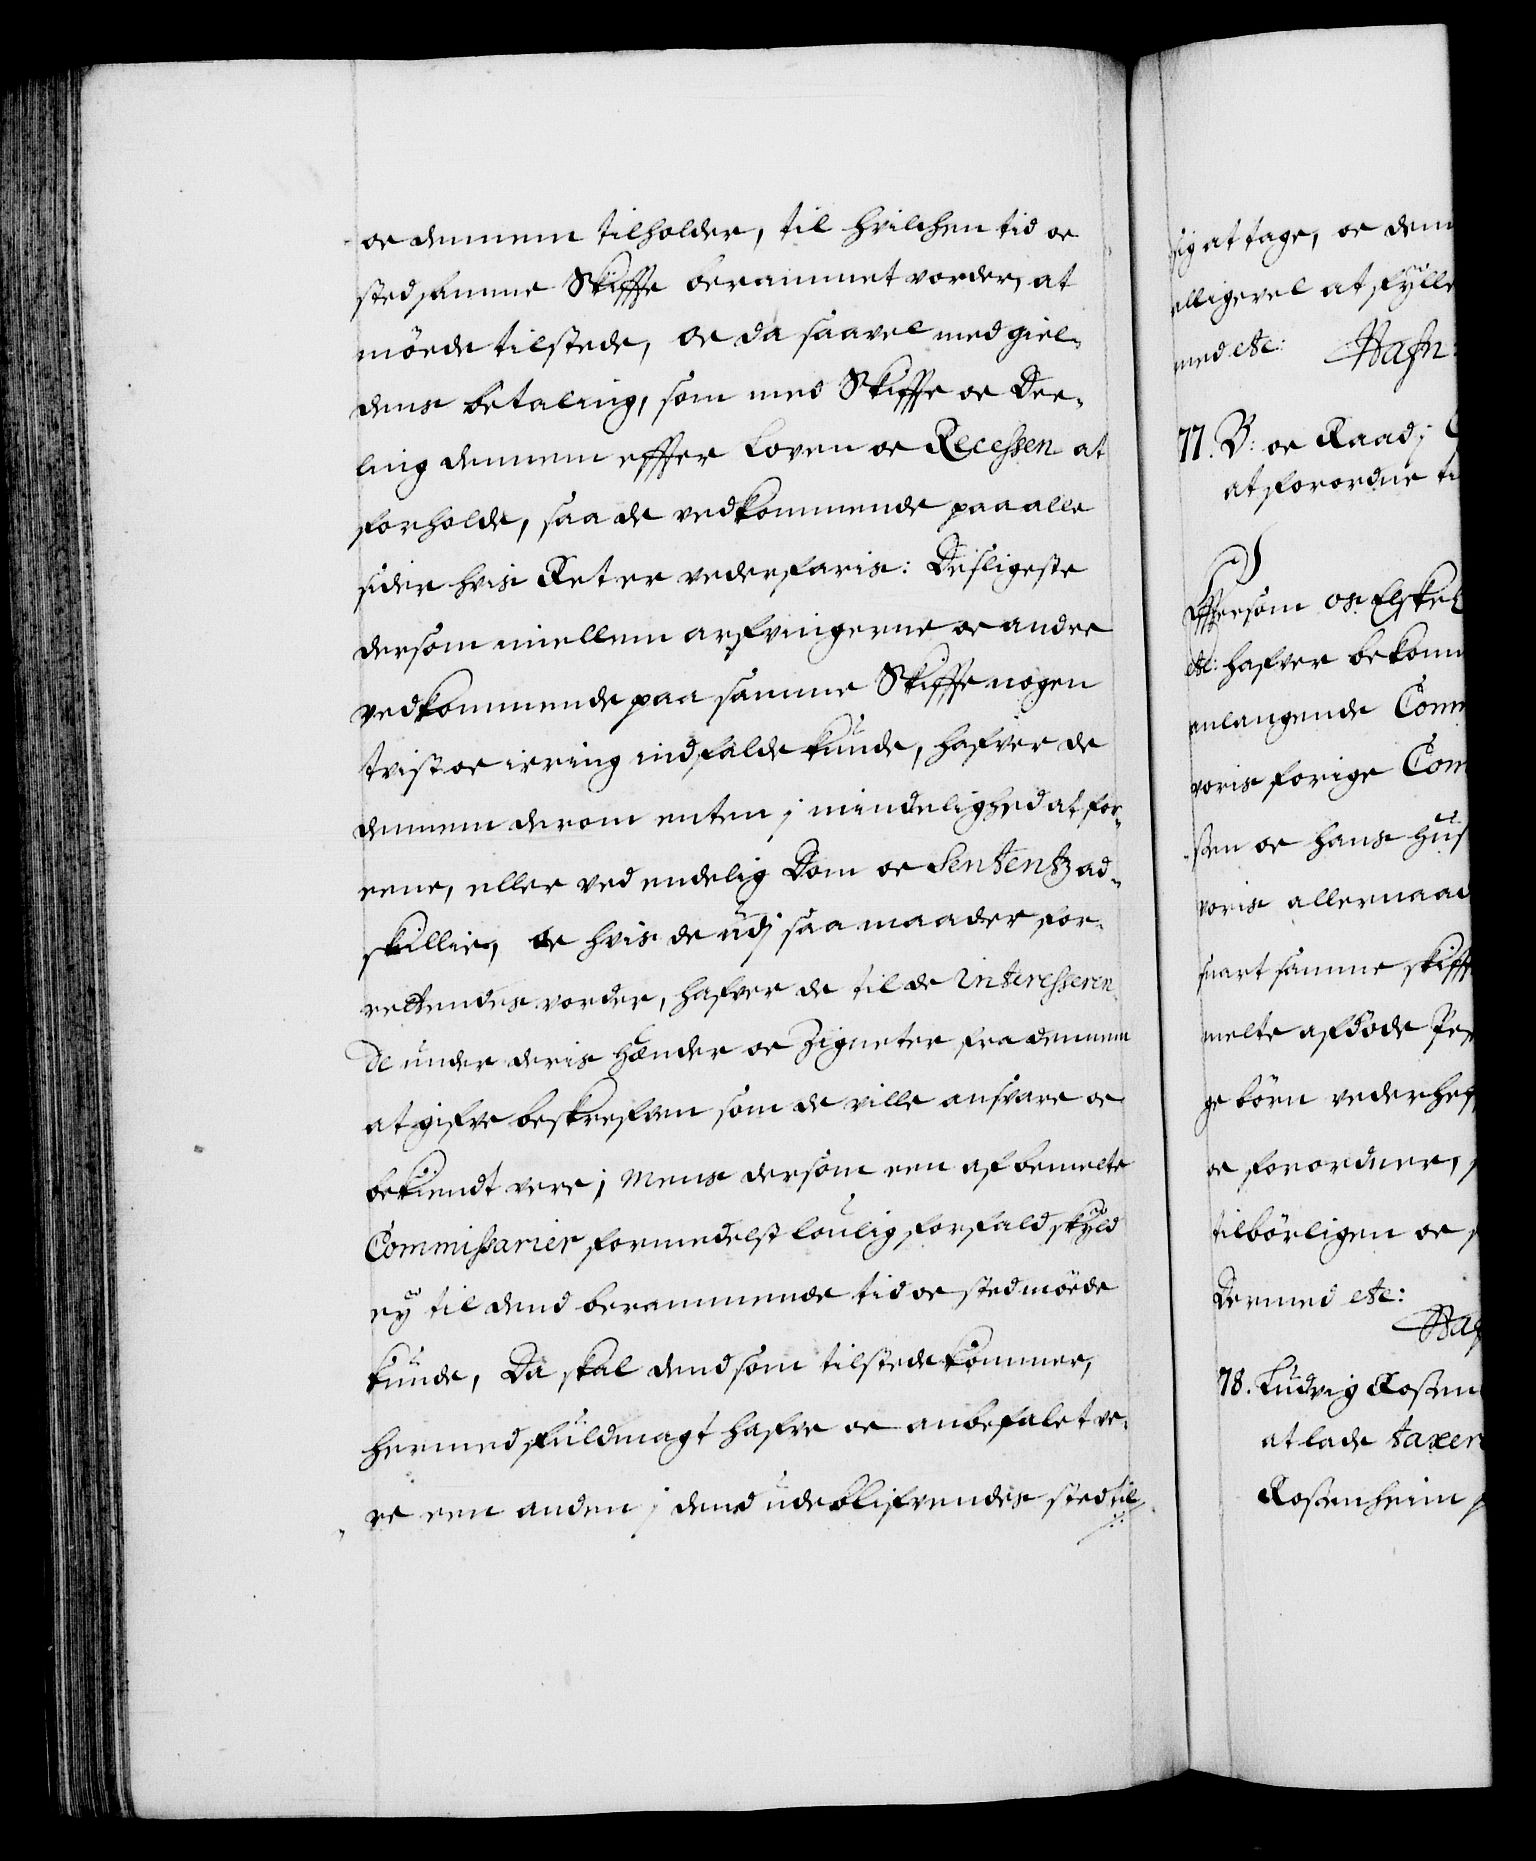 oc dennem tilholder, til hvilchen tid oc
sted samme Skiffte berammet vorder, at
möede tilstede, oc da saavel med giel-
dens betaling, som med Skiffte oc Dee-
ling dennem effter Loven oc Recessen at
forholde, saa de vedkommende paa alle
sider hvis Ret er vederfaris: Desligeste
dersom imellem arfvingerne oc andre
vedkommende paa samme Skiffte nogen
tvist oc irring indfalde kunde, hafver de
dennem derom enten i mindelighed at for-
eene, eller ved endelig Dom oc Sententz ad-
skillie, oc hvis de udj saa maader for-
rettendes vorder, hafver de til de interesseren-
de under deris Hænder oc Zigneter fra dennem
at gifve beskrefven som de ville ansvare oc
bekiendt vere; Mens dersom een af bemelte
Commissarier formedelst loulig forfald skyld
ey til dend berammende tid oc sted möede
kunde, Da skal dend som tilstede kommer,
hermed fuldmagt hafve oc anbefalet ve-
re een anden i dend udeblifvendes sted til
sig at tage, oc dem
alligevel at fylle
med etc: Hafn:
77. B: oc Raad i
at forordne ti
Eftersom os Elskel
etc: hafver bekom
anlangende Com
voris forige Com
sen oc hans Hus
voris allernaad
snart samme skiff
melte afdöde
ge börn vederhef
oc forordner,
tilbörligen oc
Dermed etc:
Haf
78. Ludvig Rosen
at lade taxer
Rosenheim